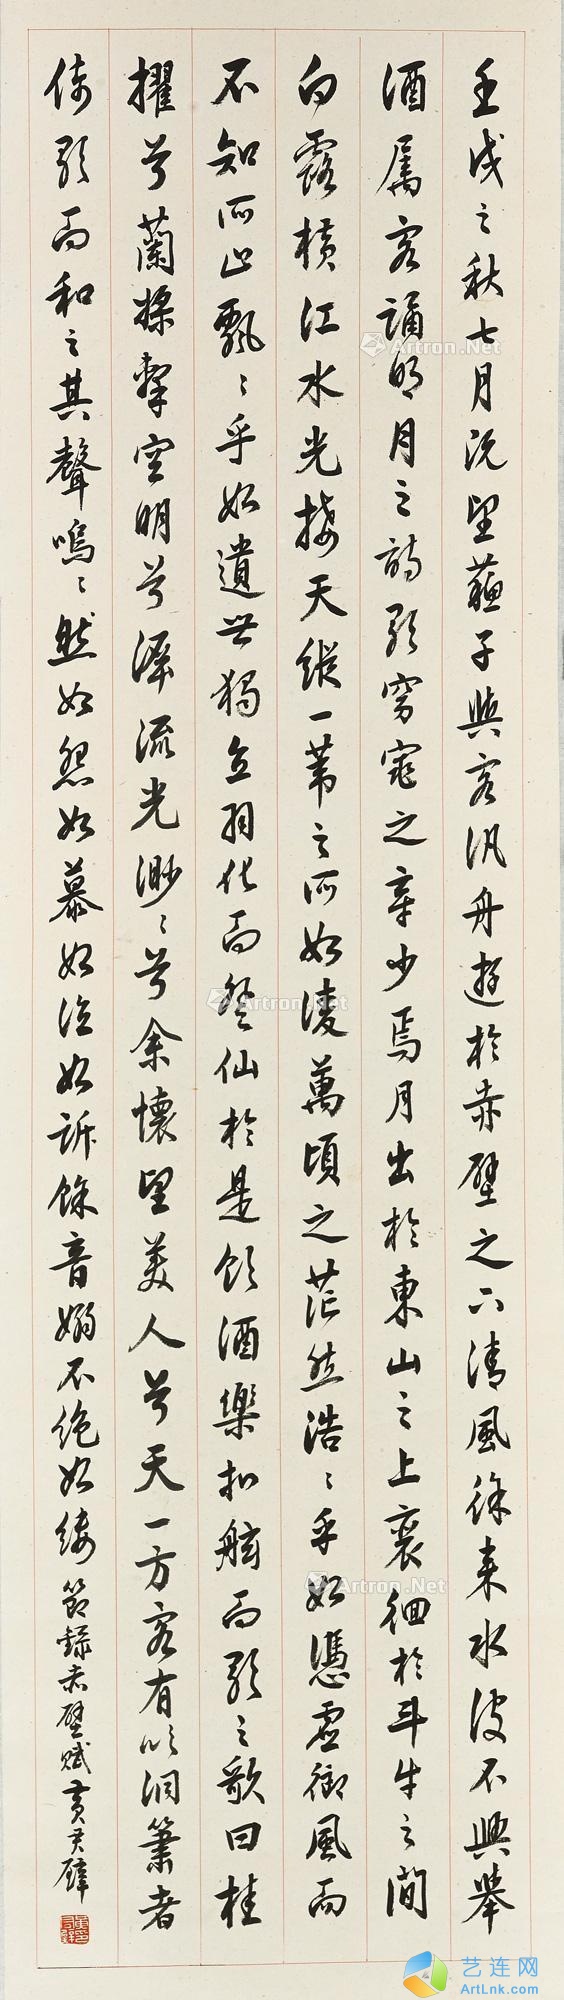 壬戌之秋七月既望蘓子與客汎舟遊於赤壁之下清風徐来水波不興舉
酒属客誦明月之詩歌窈窕之章少焉月出於東山之上裵徊於斗牛之間
白露橫江水光接天縱一葦之所如淩萬頃之茫然浩〻乎如憑虛御風而
不知所止飄〻乎如遺世獨立羽化而登仙於是飲酒樂扣舷而歌之歌曰桂
擢兮蘭槳擊空明兮泝流光渺〻兮余懷望美人兮天一方客有吹洞簫者
倚歌而和之其聲嗚〻然如怨如慕如泣如訴餘音嫋不绝如縷節錄赤壁賦黃君璧
Artron.Net
Artron.Net
Artron.Net
艺连网
ArtLnk.com